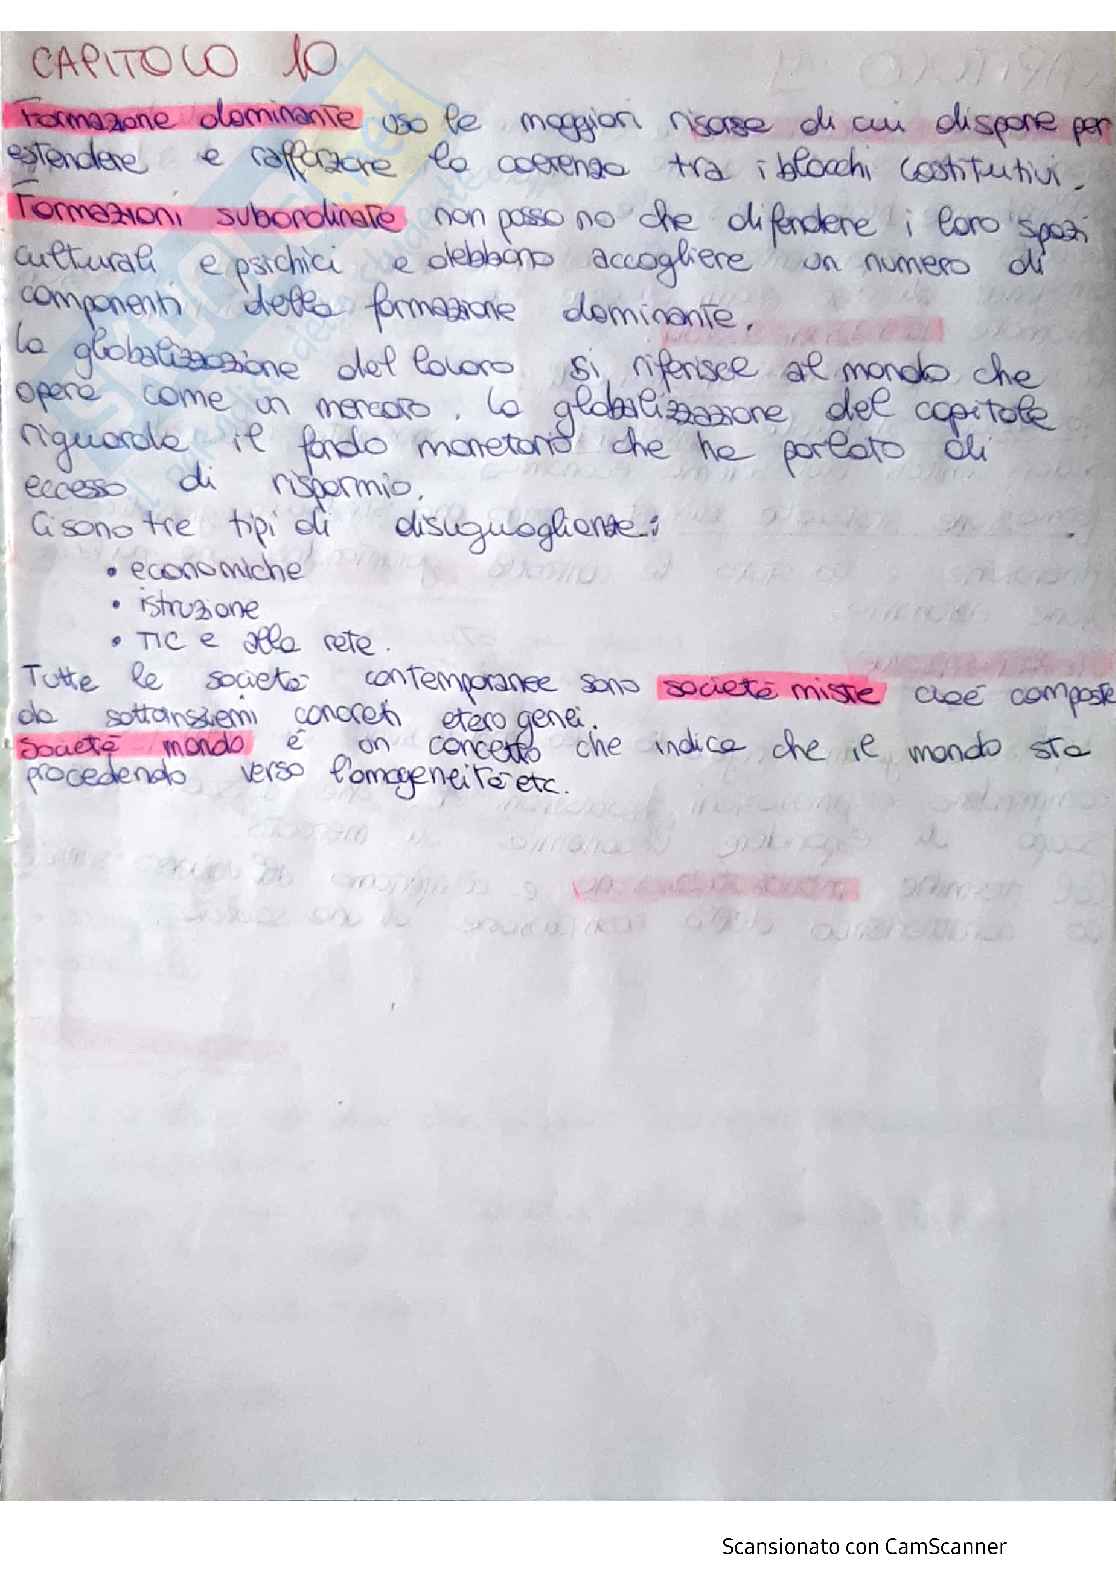 CAPITOLO 10
Formazione dominante usa le maggiori risorse di cui dispone per
estendere e rafforzare la coerenza tra i blocchi costitutivi.
Formazioni subordinate non possono che difendere i loro spazi
culturali e psichici e debbono accogliere un numero di
componenti della formazione dominante.
La globalizzazione del lavoro si riferisce al mondo che
opera come un mercato. La globalizzazione del capitale
riguarda il fondo monetario che ha parlato di
eccesso di risparmio.
Ci sono tre tipi di disuguaglianze:
• economiche
• istruzione
• TIC e alla rete.
Tutte le società contemporanee sono società miste cioè composte
da sottoinsiemi concreti eterogenei.
Società mondo è un concetto che indica che il mondo sta
procedendo verso l'omogeneità etc.
Scansionato con CamScanner